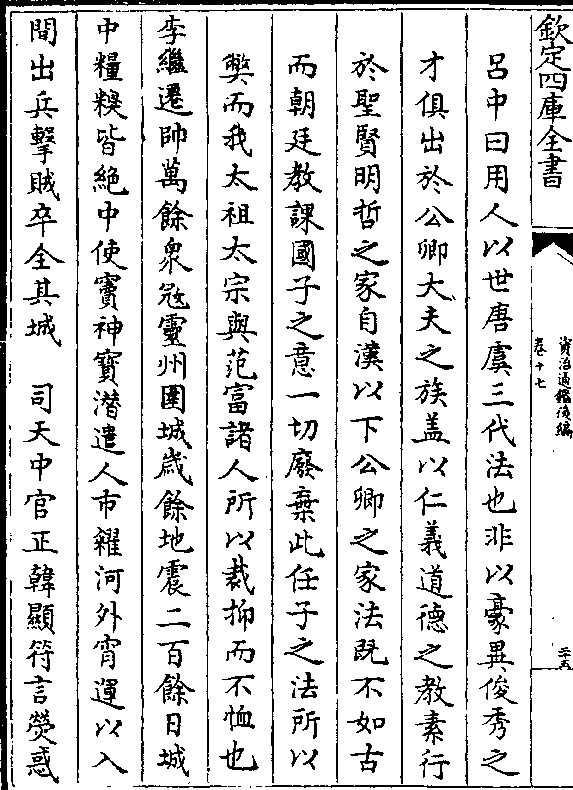 欽定四庫全書
資治通鑑後編
卷十七
二十五
呂中曰用人以世唐虞三代法也非以豪異俊秀之
才俱出於公卿大夫之族盖以仁義道德之教素行
於聖賢明哲之家自漢以下公卿之家法既不如古
而朝廷教課國子之意一切廢棄此任子之法所以
獘而我太祖太宗與范富諸人所以裁抑而不恤也
李繼遷帥萬餘衆寇靈州圍城歲餘地震二百餘日城
中糧糗皆絶中使竇神寶潜遣人市糴河外宵運以入
間出兵擊賊卒全其城　司天中官正韓顯符言熒惑